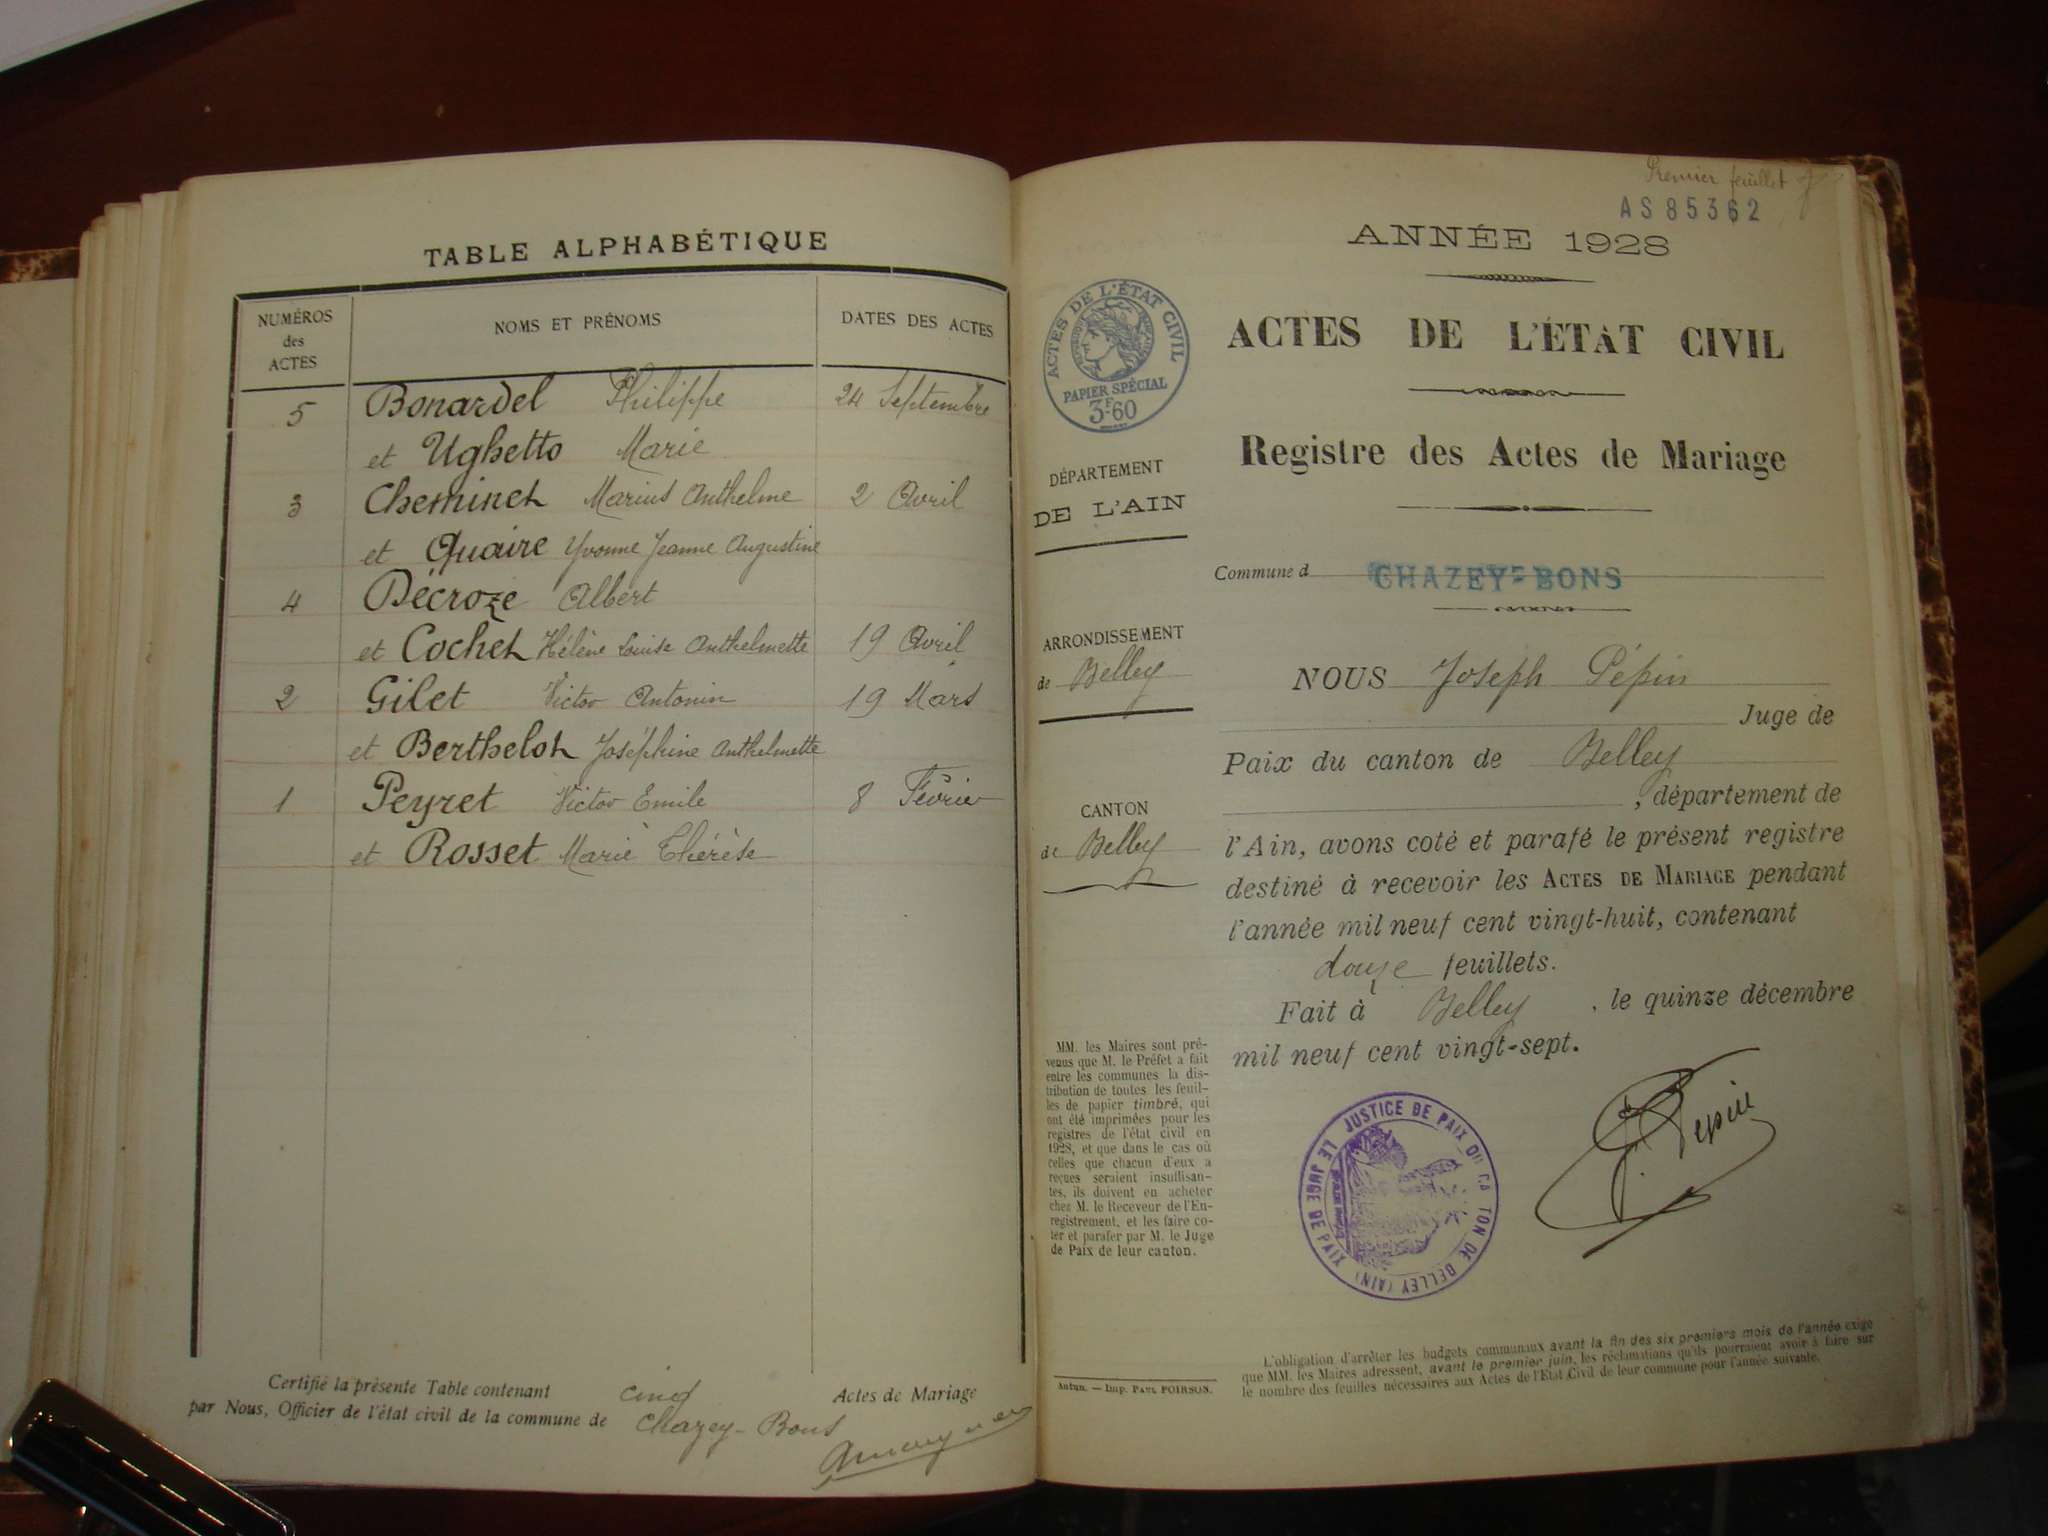 TABLE ALPHABÉTIQUE
NUMÉROS
des
ACTES
NOMS ET PRÉNOMS
DATES DES ACTES
5 Bonardel Philippe 24 Septembre
et Ughetto Marie
3 Cheminet Marius Anthelme 2 Avril
et Quaire Yvonne Jeanne Augustine
4 Décroze Albert
et Cochet Hélène Louise Anthelmette 19 Avril
2 Gilet Victor Antonin 19 Mars
et Berthelot Joséphine Anthelmette
1 Peyret Victor Emile 8 Février
et Rosset Marie Thérèse
Certifié la présente Table contenant cinq Actes de Mariage
par Nous, Officier de l'état civil de la commune de Chazey-Bons
Premier feuillet
AS85362
ANNÉE 1928
ACTES DE L'ÉTAT CIVIL
Registre des Actes de Mariage
ACTES DE L'ÉTAT CIVIL
PAPIER SPÉCIAL
3F60
DÉPARTEMENT
DE L'AIN
ARRONDISSEMENT
de Belley
CANTON
de Belley
MM. les Maires sont pré-
venus que M. le Préfet a fait
entre les communes la dis-
tribution de toutes les feuil-
les de papier timbré, qui
ont été imprimées pour les
registres de l'état civil en
1928, et que dans le cas où
celles que chacun d'eux a
reçues seraient insuffisan-
tes, ils doivent en acheter
chez M. le Receveur de l'En-
registrement, et les faire co-
ter et parafer par M. le Juge
de Paix de leur canton.
Autun. — Imp. PAUL POIRSON.
Commune d CHAZEY-BONS
NOUS Joseph Pépin
Juge de
Paix du canton de Belley
, département de
l'Ain, avons coté et parafé le présent registre
destiné à recevoir les ACTES DE MARIAGE pendant
l'année mil neuf cent vingt-huit, contenant
douze feuillets.
Fait à Belley , le quinze décembre
mil neuf cent vingt-sept.
JUSTICE DE PAIX DU CA TON DE BELLEY (AIN)
LE JUGE DE PAIX
J. Pépin
L'obligation d'arrêter les budgets communaux avant la fin des six premiers mois de l'année exige
que MM. les Maires adressent, avant le premier juin, les réclamations qu'ils pourraient avoir à faire sur
le nombre des feuilles nécessaires aux Actes de l'Etat Civil de leur commune pour l'année suivante.